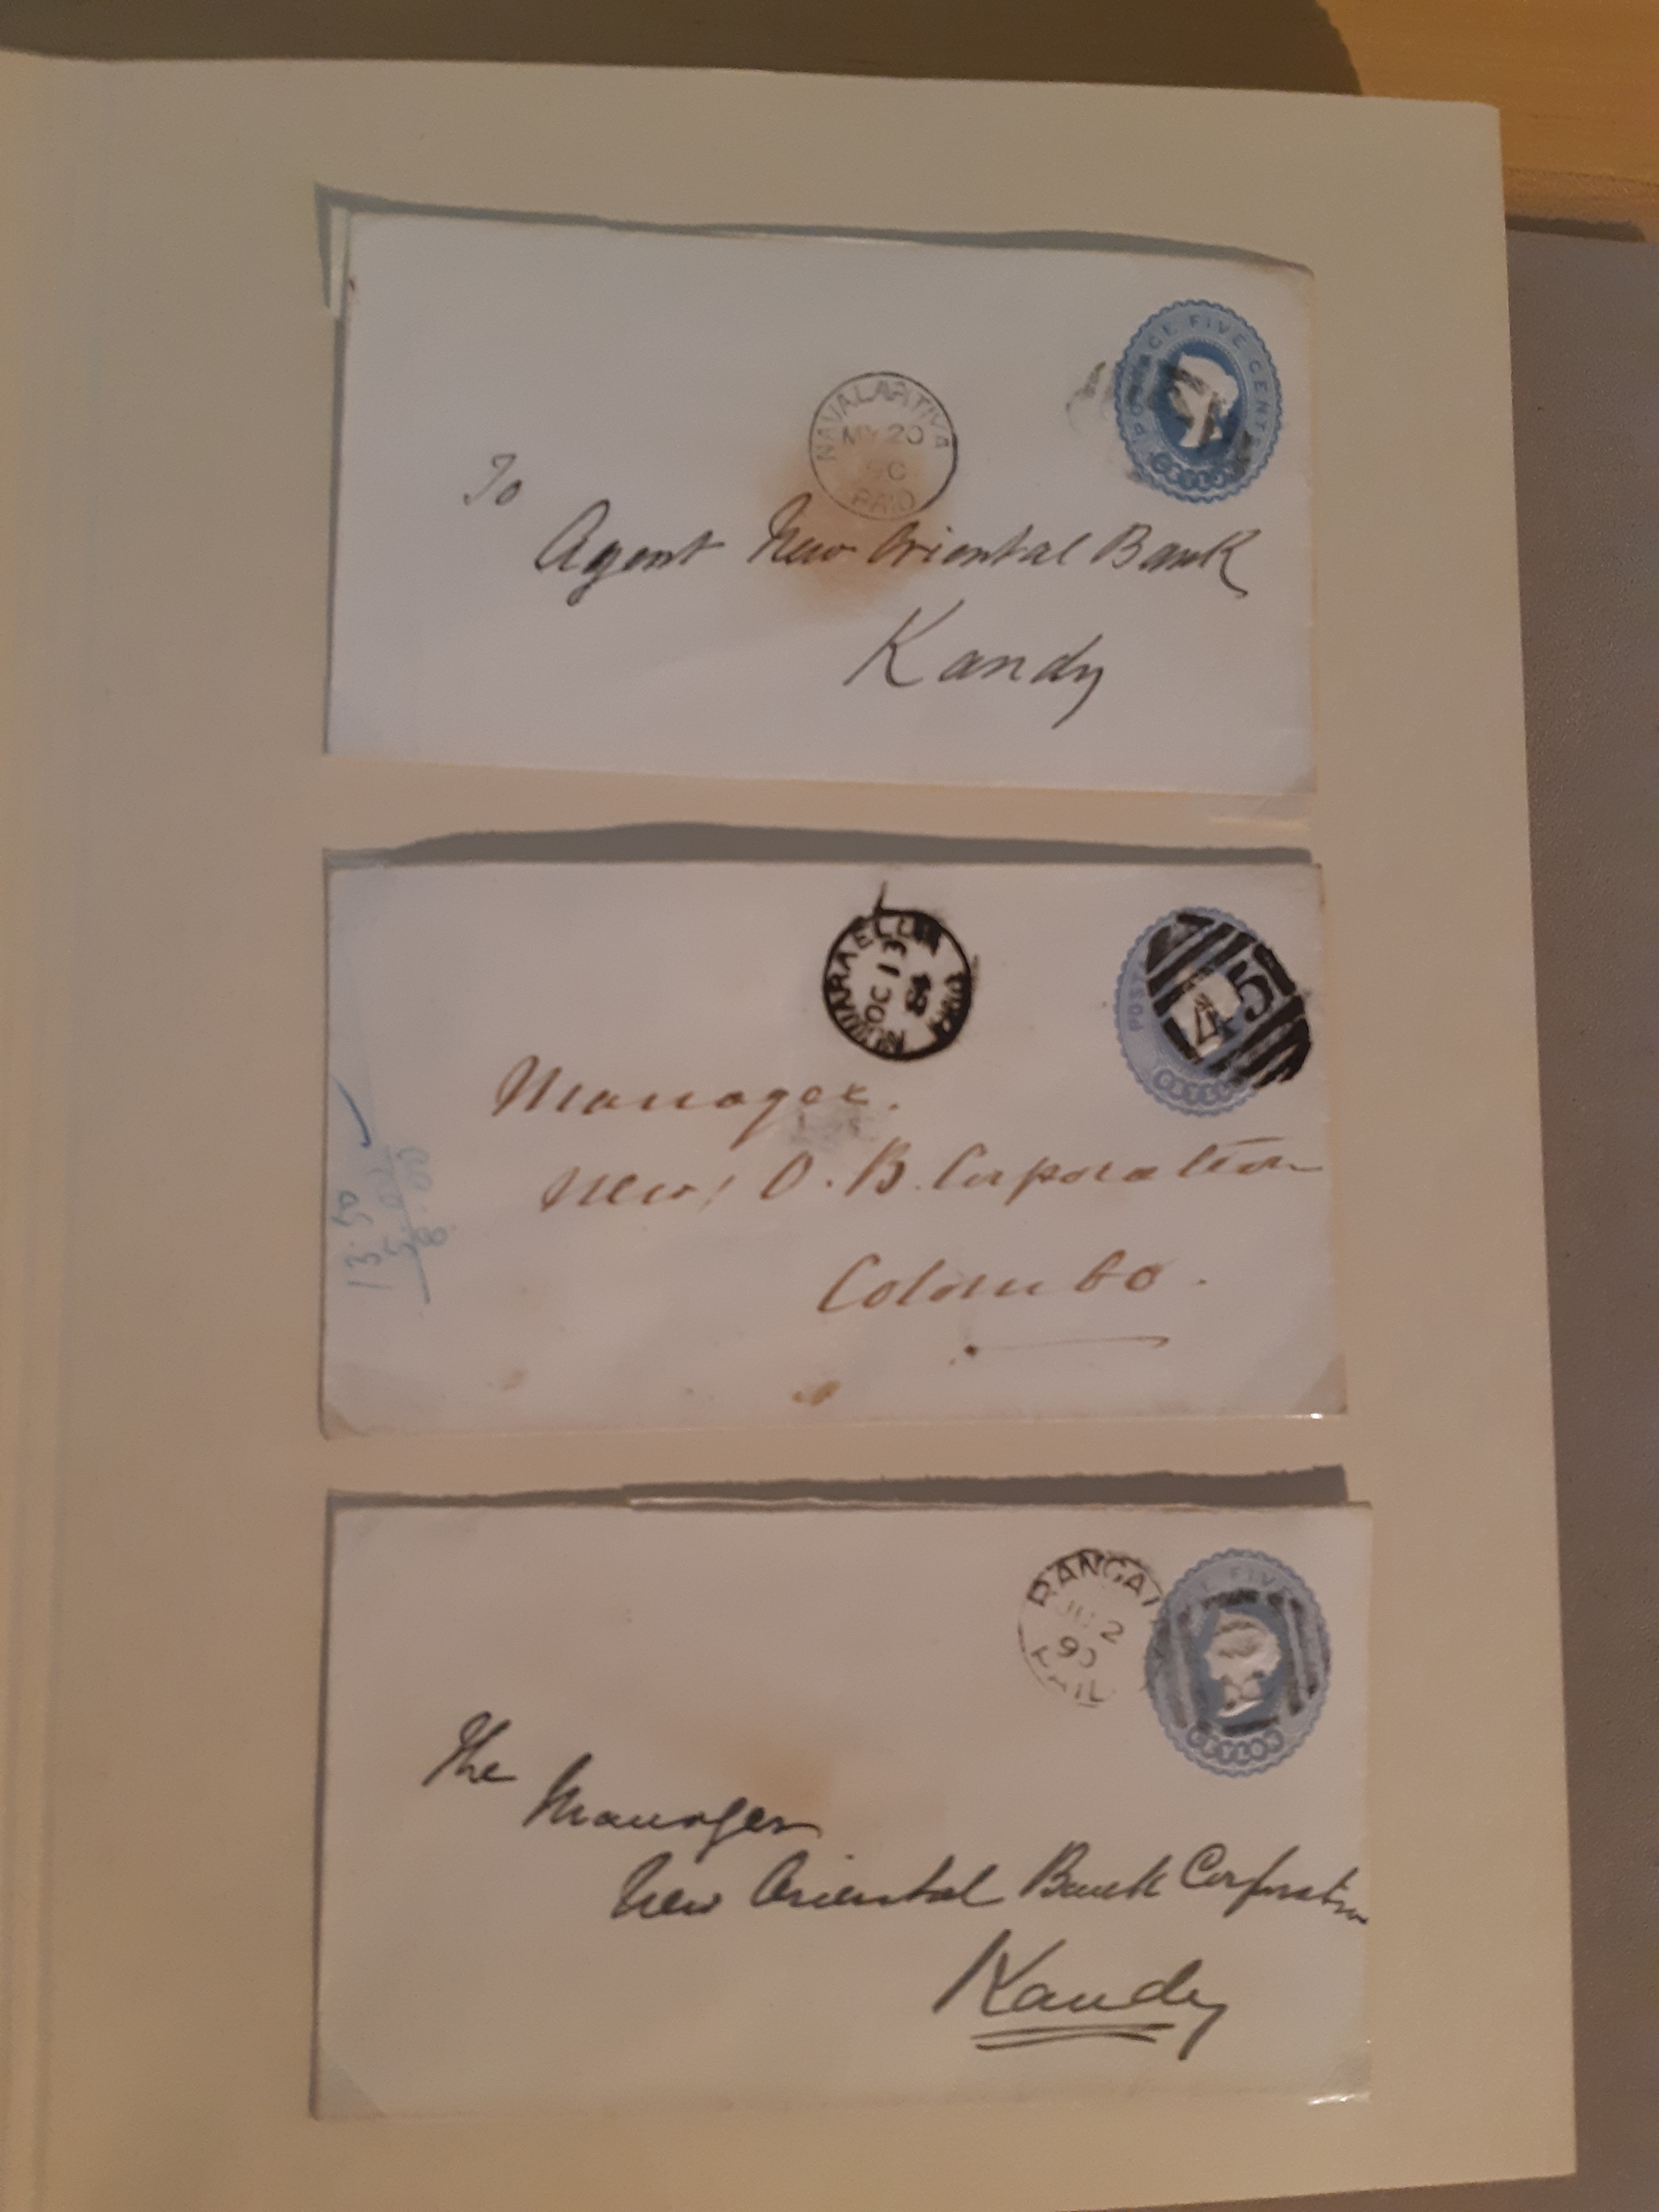 POSTAGE FIVE CENTS
CEYLON
NAWALAPITIYA
MY 20
90
PAID
To
Agent New Oriental Bank
Kandy
NUWARAELLIA
OC 13
PAID
POSTAGE
45
CEYLON
Manager.
New O. B. Corporation
Colombo.
13.50
5.00
8.00
RANGA
JU 2
90
FIVE
CEYLON
The
Manager
New Oriental Bank Corporation
Kandy